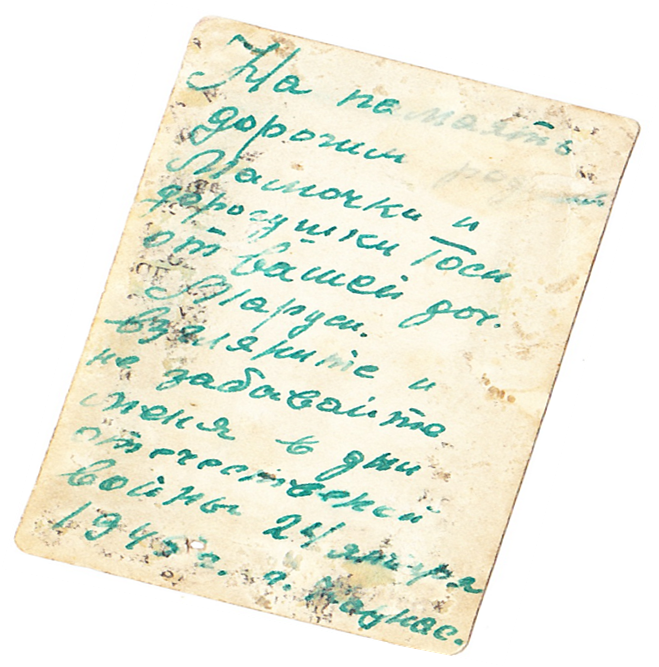 На память
дорогим
Мамочки и
дорогушки Тоси
от вашей доч.
Маруси.
взгляните и
не забывайте
меня в дни
отечественой
войны 24 января
1945 г. г. Каунас.